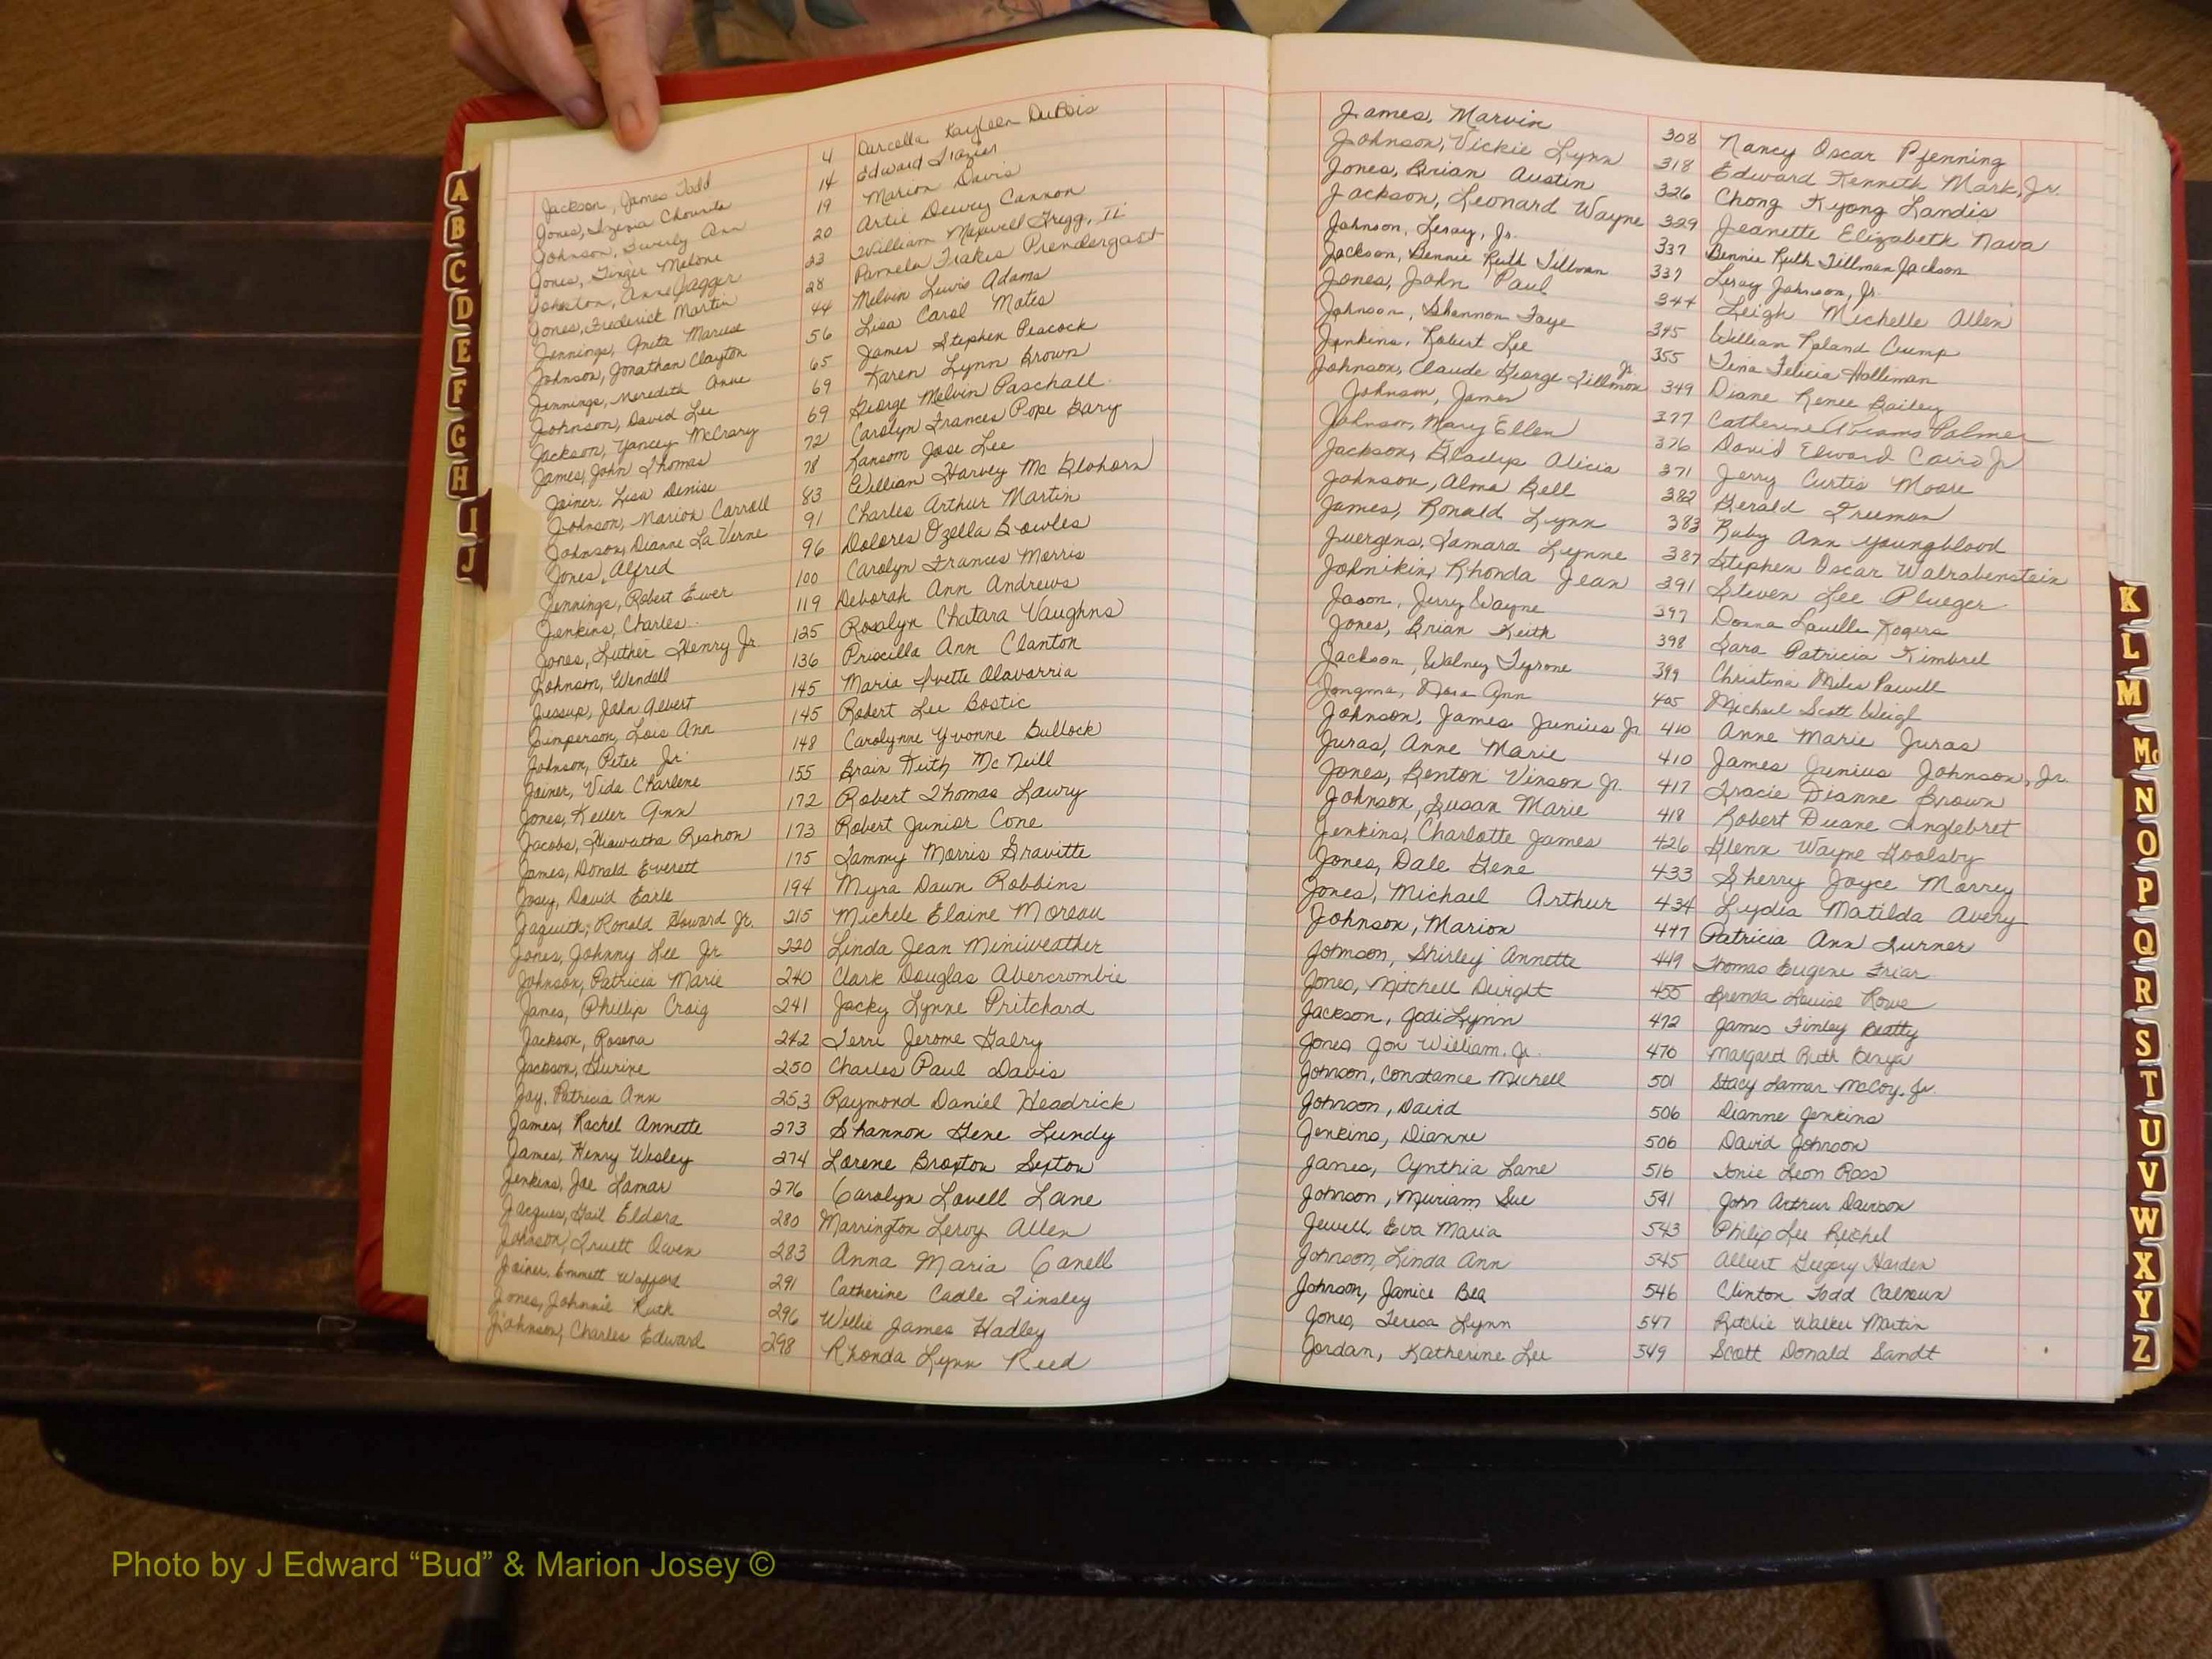 A
B
C
D
E
F
G
H
I
J
Jackson, James Todd 4 Darcella Kayleen DuBois
Jones, Chounta 14 Edward Frazier
Johnson, Beverly Ann 19 Marion Davis
Jones, Ginger Melone 20 Artie Dewey Cannon
Johnston, Anne Jagger 23 William Maxwell Gregg, II
Jones, Frederick Martin 28 Pamela Frakes Prendergast
Jennings, Anita Mariese 44 Melvin Lewis Adams
Johnson, Jonathan Clayton 56 Lisa Carol Mates
Jennings, Meredith Anne 65 James Stephen Peacock
Johnson, David Lee 69 Karen Lynn Brown
Jackson, Yancey McCrary 69 George Melvin Paschall
James, John Thomas 72 Carolyn Frances Pope Gary
Joiner, Lisa Denise 78 Ransom Jose Lee
Johnson, Marion Carroll 83 William Harvey McGlohorn
Johnson, Dianne La Verne 91 Charles Arthur Martin
Jones, Alfred 96 Dolores Ozella Bowles
Jennings, Robert Ewer 100 Carolyn Frances Morris
Jenkins, Charles 119 Deborah Ann Andrews
Jones, Luther Henry Jr. 125 Rosalyn Chatara Vaughns
Johnson, Wendell 136 Priscilla Ann Clanton
Jessup, John Albert 145 Maria Ivette Olavarria
Jimperson, Lois Ann 145 Robert Lee Bostic
Johnson, Peter Jr. 148 Carolynne Yvonne Bullock
Joiner, Vida Charlene 155 Brain Keith McNeill
Jones, Keller Ann 172 Robert Thomas Lawry
Jacobs, Hiawatha Rishon 173 Robert Junior Cone
James, Donald Everett 175 Tammy Morris Gravitte
Josey, David Earle 194 Myra Dawn Robbins
Jaquith, Ronald Howard Jr. 215 Michele Elaine Moreau
Jones, Johnny Lee Jr 220 Linda Jean Miniweather
Johnson, Patricia Marie 240 Clark Douglas Abercrombie
James, Phillip Craig 241 Jacky Lynne Pritchard
Jackson, Rosena 242 Terri Jerome Galry
Jackson, Gurine 250 Charles Paul Davis
Jay, Patricia Ann 253 Raymond Daniel Headrick
James, Rachel Annette 273 Shannon Gene Lundy
James, Henry Wesley 274 Lorene Braxton Sexton
Jenkins, Joe Lamar 276 Carolyn Lovell Lane
Jacques, Gail Eldora 280 Marrington Leroy Allen
Johnson, Truett Owen 283 Anna Maria Canell
Joiner, Emmett Wafford 291 Catherine Cadle Tinsley
Jones, Johnnie Ruth 296 Willie James Hadley
Johnson, Charles Edward 298 Rhonda Lynn Reed
James, Marvin 308 Nancy Oscar Pfenning
Johnson, Vickie Lynn 318 Edward Kenneth Mark, Jr.
Jones, Brian Austin 326 Chong Kyong Landis
Jackson, Leonard Wayne 329 Jeanette Elizabeth Nava
Johnson, Leroy, Jr. 337 Bennie Ruth Tillman Jackson
Jackson, Bennie Ruth Tillman 337 Leroy Johnson, Jr.
Jones, John Paul 344 Leigh Michelle Allen
Johnson, Shannon Faye 345 William Roland Crump
Jenkins, Robert Lee 355 Tina Felicia Holliman
Johnson, Claude George Tillmon Jr. 349 Diane Renee Bailey
Johnson, James 377 Catherine Abrams Palmer
Johnson, Mary Ellen 376 David Edward Cairo Jr
Jackson, Gladys Alicia 371 Jerry Curtis Moore
Johnson, Alma Bell 382 Gerald Freeman
James, Ronald Lynn 383 Ruby Ann Youngblood
Juergens, Tamara Lynne 387 Stephen Oscar Walrabenstein
Johnikin, Rhonda Jean 391 Steven Lee Plueger
Jason, Jerry Wayne 397 Donna Louella Rogers
Jones, Brian Keith 398 Sara Patricia Kimbrel
Jackson, Walney Tyrone 399 Christina Miles Powell
Jongma, Dora Ann 405 Michael Scott Weigl
Johnson, James Junius Jr 410 Anne Marie Juras
Juras, Anne Marie 410 James Junius Johnson, Jr.
Jones, Benton Vinson Jr. 417 Tracie Dianne Brown
Johnson, Susan Marie 418 Robert Duane Inglebret
Jenkins, Charlotte James 426 Glenn Wayne Goolsby
Jones, Dale Gene 433 Sherry Joyce Morrey
Jones, Michael Arthur 434 Lydia Matilda Avery
Johnson, Marion 447 Patricia Ann Turner
Johnson, Shirley Annette 449 Thomas Eugene Friar
Jones, Mitchell Dwight 455 Brenda Louise Rowe
Jackson, Jodi Lynn 472 James Finley Beatty
Jones Jon William, Jr. 470 Margaret Ruth Benya
Johnson, Constance Michell 501 Stacy Lamar McCoy, Jr.
Johnson, David 506 Dianne Jenkins
Jenkins, Dianne 506 David Johnson
James, Cynthia Lane 516 Tonie Leon Ross
Johnson, Muriam Sue 541 John Arthur Dawson
Jewell, Eva Maria 543 Philip Lee Reichel
Johnson, Linda Ann 545 Albert Gregory Harden
Johnson, Janice Bea 546 Clinton Todd Calhoun
Jones, Teresa Lynn 547 Ritchie Walker Martin
Jordan, Katherine Lee 549 Scott Donald Sandt
K
L
M
Mc
N
O
P
Q
R
S
T
U
V
W
X
Y
Z
Photo by J Edward “Bud” & Marion Josey ©